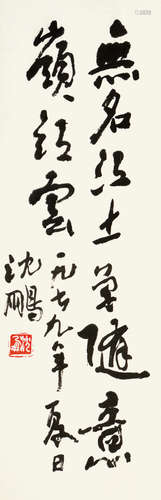 無名江上草隨意
嶺頭雲 一九七九年夏日
沈鵬